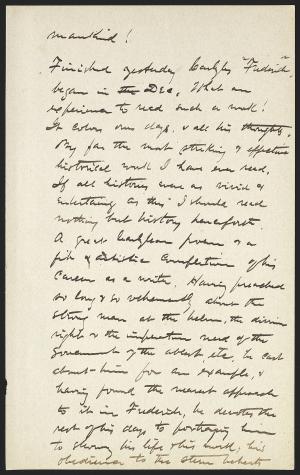 mankind!
Finished yesterday Carlyle's "Frederick",
began in the Dec, What an
experience to read such a work!
It colors one's days, & all his thoughts.
By far the most striking & effective
historical work I have ever read.
If all histories were as vivid &
entertaining as this I should read
nothing but history henceforth.
A great Carlylean poem & a
fit & artistic completion of his
career as a writer. Having preached
so long & so vehemently about the
strong man at the helm, the divine
right & the imperative need of the
Government of the ablest, etc, he cast
about him for an example, &
having found the nearest approach
to it in Frederick, he devotes the
rest of his days to portraying him
to showing his life & his work, his
obedience to the stern behests